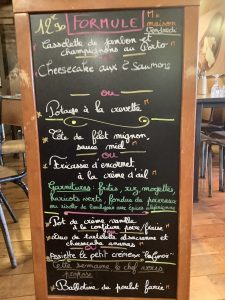 12€90 FORMULE M: maison
Vendredi
Cassolette de jambon et
champignons au Porto
Cheesecake aux 2 Saumons
ou
Potage à la crevette M
Côte de filet mignon
sauce miel M
ou
Fricassée d'encornet M
à la crème d'ail
Garnitures: frites, riz, mogettes,
haricots verts, fondue de poireaux
Pot de crème vanille M
à la confiture poire/fraise
Duo de tartelette alsacienne et
cheesecake ananas M
Assiette le petit crémeux
Cette semaine le chef vous
propose
Ballotine de poulet farcie M